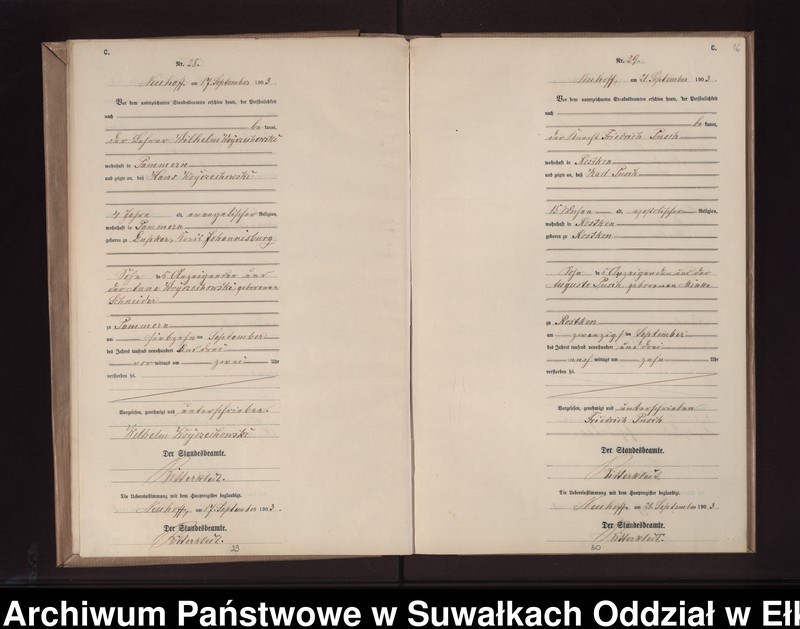 C.
Nr. 28.
Neuhoff, am 17. September 1903.
Vor dem unterzeichneten Standesbeamten erschien heute, der Persönlichkeit
nach
be kannt,
der Lehrer Wilhelm Woyczechowski
wohnhaft in Pammern
und zeigte an, daß Hans Woyczechowski
4 Jahre alt, evangelischer Religion,
wohnhaft in Pammern
geboren zu Kreis Johannisburg
Sohn des Anzeigenden und
der Anna Woyczechowski geborenen
Schneider
zu Pammern
am siebzehn ten September
des Jahres tausend neunhundert und drei
vor mittags um zwei Uhr
verstorben sei.
Vorgelesen, genehmigt und unterschrieben.
Wilhelm Woyczechowski
Der Standesbeamte.
Die Uebereinstimmung mit dem Hauptregister beglaubigt.
Neuhoff, am 17. September 1903.
Der Standesbeamte.
C.
Nr. 29.
Neuhoff, am 21. September 1903.
Vor dem unterzeichneten Standesbeamten erschien heute, der Persönlichkeit
nach
be kannt,
der Knecht Friedrich
wohnhaft in Rostken
und zeigte an, daß Karl
15 Wochen alt, Religion,
wohnhaft in Rostken
geboren zu Rostken
Sohn des Anzeigenden und der
Auguste geborenen
zu Rostken
am zwanzigs ten September
des Jahres tausend neunhundert und drei
nach mittags um zehn Uhr
verstorben sei.
Vorgelesen, genehmigt und unterschrieben
Friedrich
Der Standesbeamte.
Die Uebereinstimmung mit dem Hauptregister beglaubigt.
Neuhoff, am September 1903.
Der Standesbeamte.
Archiwum Państwowe w Suwałkach Oddział w Ełk